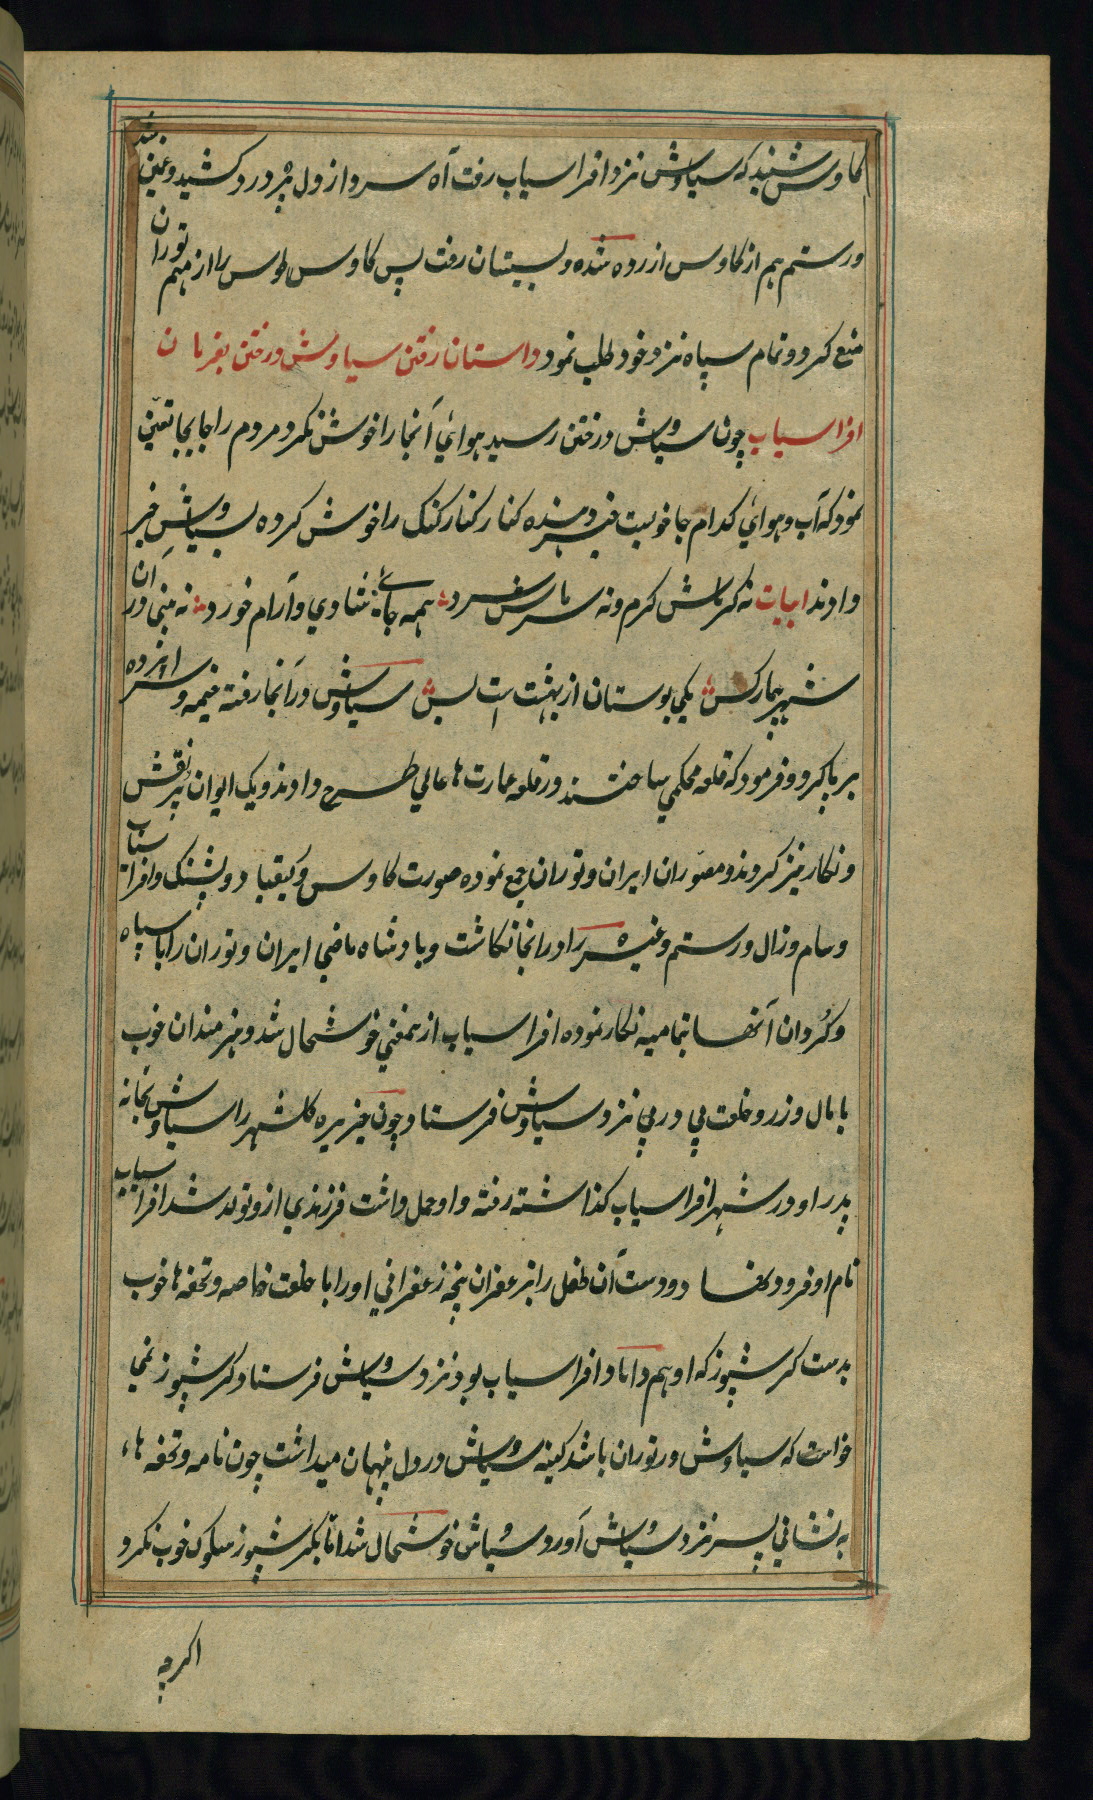 کاوس شنید که سیاوش نزد افراسیاب رفت آه سرد از دل پُر درد کشید و غمین شد
و رستم هم از کاوس ازرده شده و بسیستان رفت پس کاوس طوس را از مهم توران
منع کرد و تمام سپاه نزد خود طلب نمود داستان رفتن سیاوش در ختن بفرمان
افراسیاب چون سیاوش در ختن رسید هوائي آنجا را خوش نکرد مردم را جابجا تعین
نمود که آب و هوائي کدام جا خوبست خبر دهنده کنار کنار کنک را خوش کرده بسیاوش خبر
دادند ابیات نه کرماش کرم و نه سرماش سرد همه جاے شادي و آرام خورد نه بینی دران
شهر بیمار کس یکي بوستان از بهشت است بس سیاوش در آنجا رفته خیمه و سراپرده
بر پا کرد و فرمود که قلعه محکمي ساختند در قلعه عمارت ها عالي طرح دادند و یک ایوان پر نقش
و نکار نیز کردند و مصوّران ایران و توران جمع نموده صورت کاوس و کیقباد و پشنک و افراسیاب
و سام و زال و رستم و غیره را در انجا نکاشت و بادشاه ماضي ایران و توران را با سپاه
و کُردان آنها بتمامیه نکار نموده افراسیاب ازیمعني خوشحال شد و هنرمندان خوب
با مال و زر و خلعت پي در پي نزد سیاوش فرستاد چون جریره کلشهر را سیاوش بخانه
پدر او در شهر افراسیاب کذاشته رفته و او حمل داشت فرزندي ازو تولد شد افراسیاب
نام او فرود نهاد و دست آن طفل را بزعفران پنجه زعفراني او را با خلعت خاصه و تحفه ها خوب
بدست کرشیوز که او هم داماد افراسیاب بود نزد سیاوش فرستاد کرشیوز نمي
خواست که سیاوش در توران باشد کینه سیاوش در دل پنهان میداشت چون نامه و تحفه ها،
به نشاني پسر نزد سیاوش آورد سیاوش خوشحال شد امّا بکرشیوز سلوک خوب نکرد
اکرچه